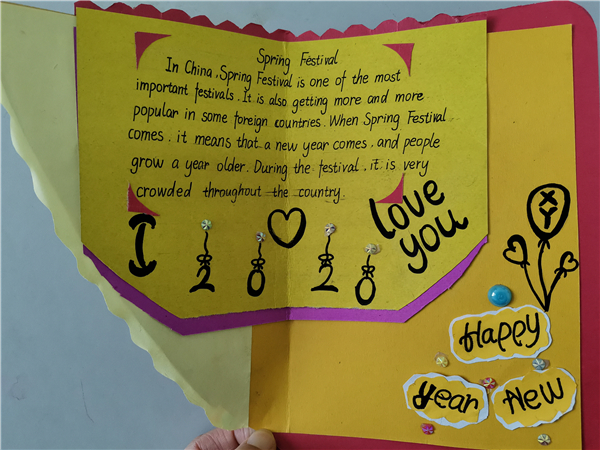 Spring Festival
In China, Spring Festival is one of the most
important festivals. It is also getting more and more
popular in some foreign countries. When Spring Festival
comes. it means that a new year comes, and people
grow a year older. During the festival, it is very
crowded throughout the country.
I
love
you
2 0 2 0
XY
Happy
Year New